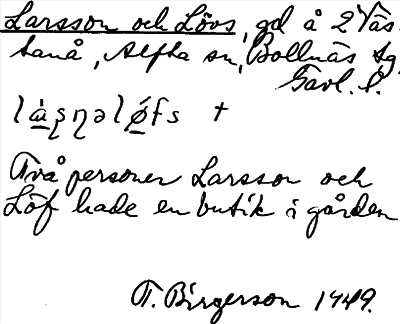 Larsson och Lövs, gd å 2 Väs-
tanå, Alfta sn, Bollnäs tg
Gävl. l.
Två personer Larsson och
Löf hade en butik i gården
T. Birgerson 1949.